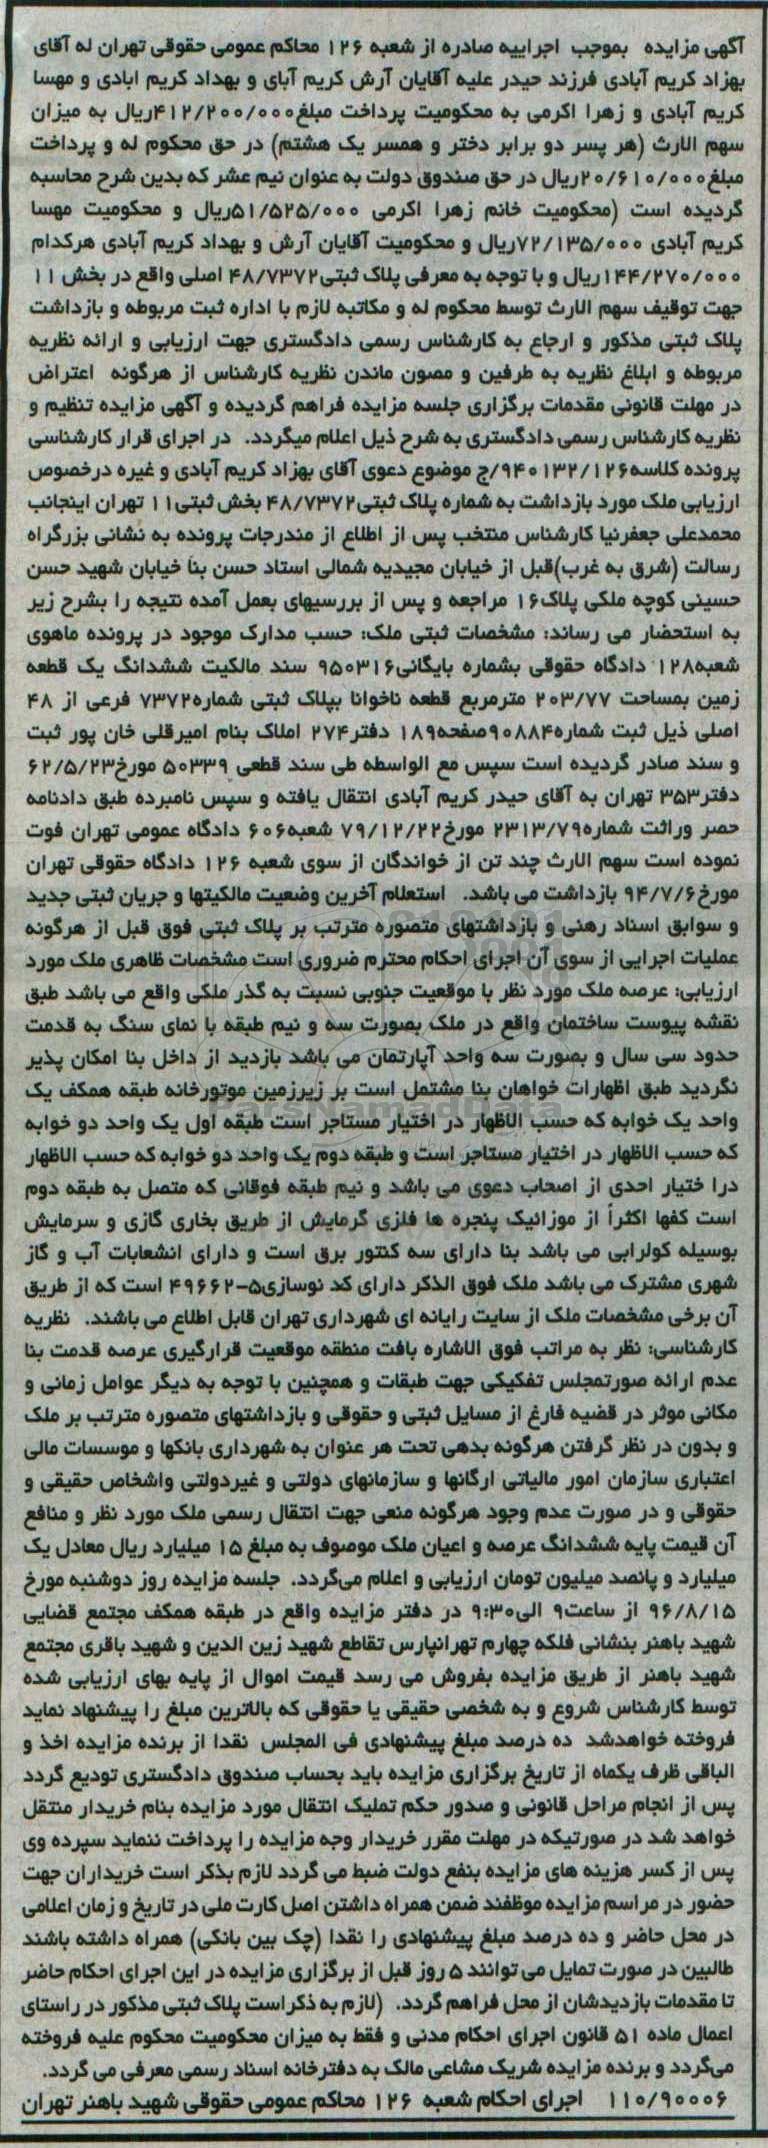 آگهی مزایده بموجب اجراییه صادره از شعبه ۱۲۶ محاکم عمومی حقوقی تهران له آقای
بهزاد کریم آبادی فرزند حیدر علیه آقایان آرش کریم آبای و بهداد کریم ابادی و مهسا
کریم آبادی و زهرا اکرمی به محکومیت پرداخت مبلغ۴۱۲/۲۰۰/۰۰۰ریال به میزان
سهم الارث (هر پسر دو برابر دختر و همسر یک هشتم) در حق محکوم له و پرداخت
مبلغ۲۰/۶۱۰/۰۰۰ریال در حق صندوق دولت به عنوان نیم عشر که بدین شرح محاسبه
گردیده است (محکومیت خانم زهرا اکرمی ۵۱/۵۲۵/۰۰۰ریال و محکومیت مهسا
کریم آبادی ۷۲/۱۳۵/۰۰۰ریال و محکومیت آقایان آرش و بهداد کریم آبادی هرکدام
۱۴۴/۲۷۰/۰۰۰ریال و با توجه به معرفی پلاک ثبتی۴۸/۷۳۷۲ اصلی واقع در بخش ۱۱
جهت توقیف سهم الارث توسط محکوم له و مکاتبه لازم با اداره ثبت مربوطه و بازداشت
پلاک ثبتی مذکور و ارجاع به کارشناس رسمی دادگستری جهت ارزیابی و ارائه نظریه
مربوطه و ابلاغ نظریه به طرفین و مصون ماندن نظریه کارشناس از هرگونه اعتراض
در مهلت قانونی مقدمات برگزاری جلسه مزایده فراهم گردیده و آگهی مزایده تنظیم و
نظریه کارشناس رسمی دادگستری به شرح ذیل اعلام میگردد. در اجرای قرار کارشناسی
پرونده کلاسه۹۴۰۱۳۲/۱۲۶/ج موضوع دعوی آقای بهزاد کریم آبادی و غیره درخصوص
ارزیابی ملک مورد بازداشت به شماره پلاک ثبتی۴۸/۷۳۷۲ بخش ثبتی۱۱ تهران اینجانب
محمدعلی جعفرنیا کارشناس منتخب پس از اطلاع از مندرجات پرونده به نشانی بزرگراه
رسالت (شرق به غرب)قبل از خیابان مجیدیه شمالی استاد حسن بنا خیابان شهید حسن
حسینی کوچه ملکی پلاک۱۶ مراجعه و پس از بررسیهای بعمل آمده نتیجه را بشرح زیر
به استحضار می رساند: مشخصات ثبتی ملک: حسب مدارک موجود در پرونده ماهوی
شعبه۱۲۸ دادگاه حقوقی بشماره بایگانی۹۵۰۳۱۶ سند مالکیت ششدانگ یک قطعه
زمین بمساحت ۲۰۳/۷۷ مترمربع قطعه ناخوانا بپلاک ثبتی شماره۷۳۷۲ فرعی از ۴۸
اصلی ذیل ثبت شماره۹۰۸۸۴صفحه۱۸۹ دفتر۲۷۴ املاک بنام امیرقلی خان پور ثبت
و سند صادر گردیده است سپس مع الواسطه طی سند قطعی ۵۰۳۳۹ مورخ۶۲/۵/۲۳
دفتر۳۵۳ تهران به آقای حیدر کریم آبادی انتقال یافته و سپس نامبرده طبق دادنامه
حصر وراثت شماره۲۳۱۳/۷۹ مورخ۷۹/۱۲/۲۲ شعبه۶۰۶ دادگاه عمومی تهران فوت
نموده است سهم الارث چند تن از خواندگان از سوی شعبه ۱۲۶ دادگاه حقوقی تهران
مورخ۹۴/۷/۶ بازداشت می باشد. استعلام آخرین وضعیت مالکیتها و جریان ثبتی جدید
و سوابق اسناد رهنی و بازداشتهای متصوره مترتب بر پلاک ثبتی فوق قبل از هرگونه
عملیات اجرایی از سوی آن اجرای احکام محترم ضروری است مشخصات ظاهری ملک مورد
ارزیابی: عرصه ملک مورد نظر با موقعیت جنوبی نسبت به گذر ملکی واقع می باشد طبق
نقشه پیوست ساختمان واقع در ملک بصورت سه و نیم طبقه با نمای سنگ به قدمت
حدود سی سال و بصورت سه واحد آپارتمان می باشد بازدید از داخل بنا امکان پذیر
نگردید طبق اظهارات خواهان بنا مشتمل است بر زیرزمین موتورخانه طبقه همکف یک
واحد یک خوابه که حسب الاظهار در اختیار مستاجر است طبقه اول یک واحد دو خوابه
که حسب الاظهار در اختیار مستاجر است و طبقه دوم یک واحد دو خوابه که حسب الاظهار
درا ختیار احدی از اصحاب دعوی می باشد و نیم طبقه فوقانی که متصل به طبقه دوم
است کفها اکثراً از موزائیک پنجره ها فلزی گرمایش از طریق بخاری گازی و سرمایش
بوسیله کولرابی می باشد بنا دارای سه کنتور برق است و دارای انشعابات آب و گاز
شهری مشترک می باشد ملک فوق الذکر دارای کد نوسازی۵-۴۹۶۶۲ است که از طریق
آن برخی مشخصات ملک از سایت رایانه ای شهرداری تهران قابل اطلاع می باشند. نظریه
کارشناسی: نظر به مراتب فوق الاشاره بافت منطقه موقعیت قرارگیری عرصه قدمت بنا
عدم ارائه صورتمجلس تفکیکی جهت طبقات و همچنین با توجه به دیگر عوامل زمانی و
مکانی موثر در قضیه فارغ از مسایل ثبتی و حقوقی و بازداشتهای متصوره مترتب بر ملک
و بدون در نظر گرفتن هرگونه بدهی تحت هر عنوان به شهرداری بانکها و موسسات مالی
اعتباری سازمان امور مالیاتی ارگانها و سازمانهای دولتی و غیردولتی واشخاص حقیقی و
حقوقی و در صورت عدم وجود هرگونه منعی جهت انتقال رسمی ملک مورد نظر و منافع
آن قیمت پایه ششدانگ عرصه و اعیان ملک موصوف به مبلغ ۱۵ میلیارد ریال معادل یک
میلیارد و پانصد میلیون تومان ارزیابی و اعلام می‌گردد. جلسه مزایده روز دوشنبه مورخ
۹۶/۸/۱۵ از ساعت۹ الی۹:۳۰ در دفتر مزایده واقع در طبقه همکف مجتمع قضایی
شهید باهنر بنشانی فلکه چهارم تهرانپارس تقاطع شهید زین الدین و شهید باقری مجتمع
شهید باهنر از طریق مزایده بفروش می رسد قیمت اموال از پایه بهای ارزیابی شده
توسط کارشناس شروع و به شخصی حقیقی یا حقوقی که بالاترین مبلغ را پیشنهاد نماید
فروخته خواهدشد ده درصد مبلغ پیشنهادی فی المجلس نقدا از برنده مزایده اخذ و
الباقی ظرف یکماه از تاریخ برگزاری مزایده باید بحساب صندوق دادگستری تودیع گردد
پس از انجام مراحل قانونی و صدور حکم تملیک انتقال مورد مزایده بنام خریدار منتقل
خواهد شد در صورتیکه در مهلت مقرر خریدار وجه مزایده را پرداخت ننماید سپرده وی
پس از کسر هزینه های مزایده بنفع دولت ضبط می گردد لازم بذکر است خریداران جهت
حضور در مراسم مزایده موظفند ضمن همراه داشتن اصل کارت ملی در تاریخ و زمان اعلامی
در محل حاضر و ده درصد مبلغ پیشنهادی را نقدا (چک بین بانکی) همراه داشته باشند
طالبین در صورت تمایل می توانند ۵ روز قبل از برگزاری مزایده در این اجرای احکام حاضر
تا مقدمات بازدیدشان از محل فراهم گردد. (لازم به ذکراست پلاک ثبتی مذکور در راستای
اعمال ماده ۵۱ قانون اجرای احکام مدنی و فقط به میزان محکومیت محکوم علیه فروخته
می‌گردد و برنده مزایده شریک مشاعی مالک به دفترخانه اسناد رسمی معرفی می گردد.
۱۱۰/۹۰۰۰۶ اجرای احکام شعبه ۱۲۶ محاکم عمومی حقوقی شهید باهنر تهران
ParsNamadData